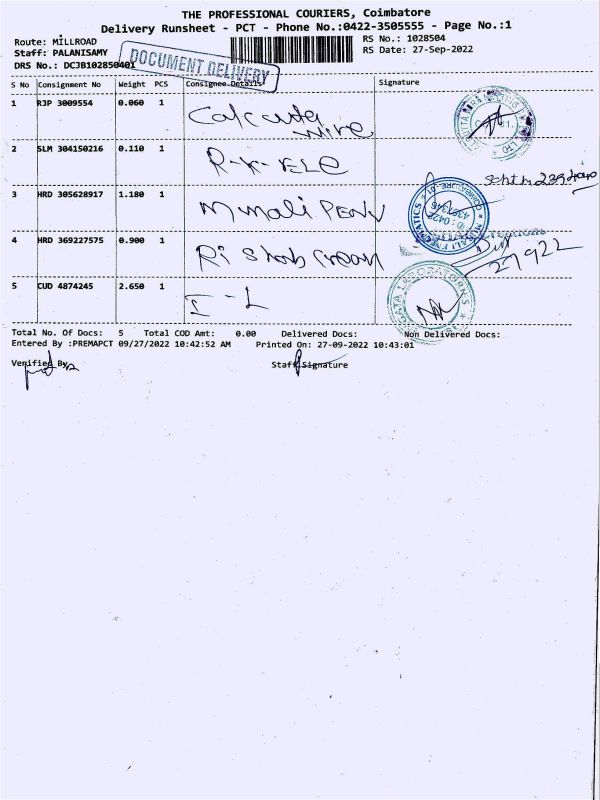 THE PROFESSIONAL COURIERS, Coimbatore
Delivery Runsheet - PCT - Phone No.:0422-3505555 - Page No.:1
Route: MILLROAD
RS No.: 1028504
Staff: PALANISAMY
RS Date: 27-Sep-2022
DRS No.: DCJB102850401
DOCUMENT DELIVERY
S No Consignment No Weight PCS Consignee Details Signature
1 RJP 3009554 0.060 1 Calcutta
wire
2 SLM 304150216 0.110 1 R-K-ELE
3 HRD 305628917 1.180 1
4 HRD 369227575 0.900 1
27922
5 CUD 4874245 2.650 1 I-L
Total No. Of Docs: 5 Total COD Amt: 0.00 Delivered Docs: Non Delivered Docs:
Entered By :PREMAPCT 09/27/2022 10:42:52 AM Printed On: 27-09-2022 10:43:01
Verified By Staff Signature